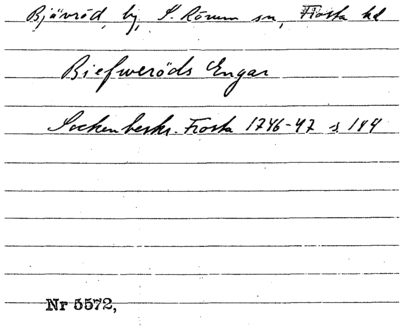 Bjävröd, by, S. Rörum sn, Frosta hd
Biefweröds Engar
Sockenbeskr. Frosta 1746-47 s 184
Nr 5572,